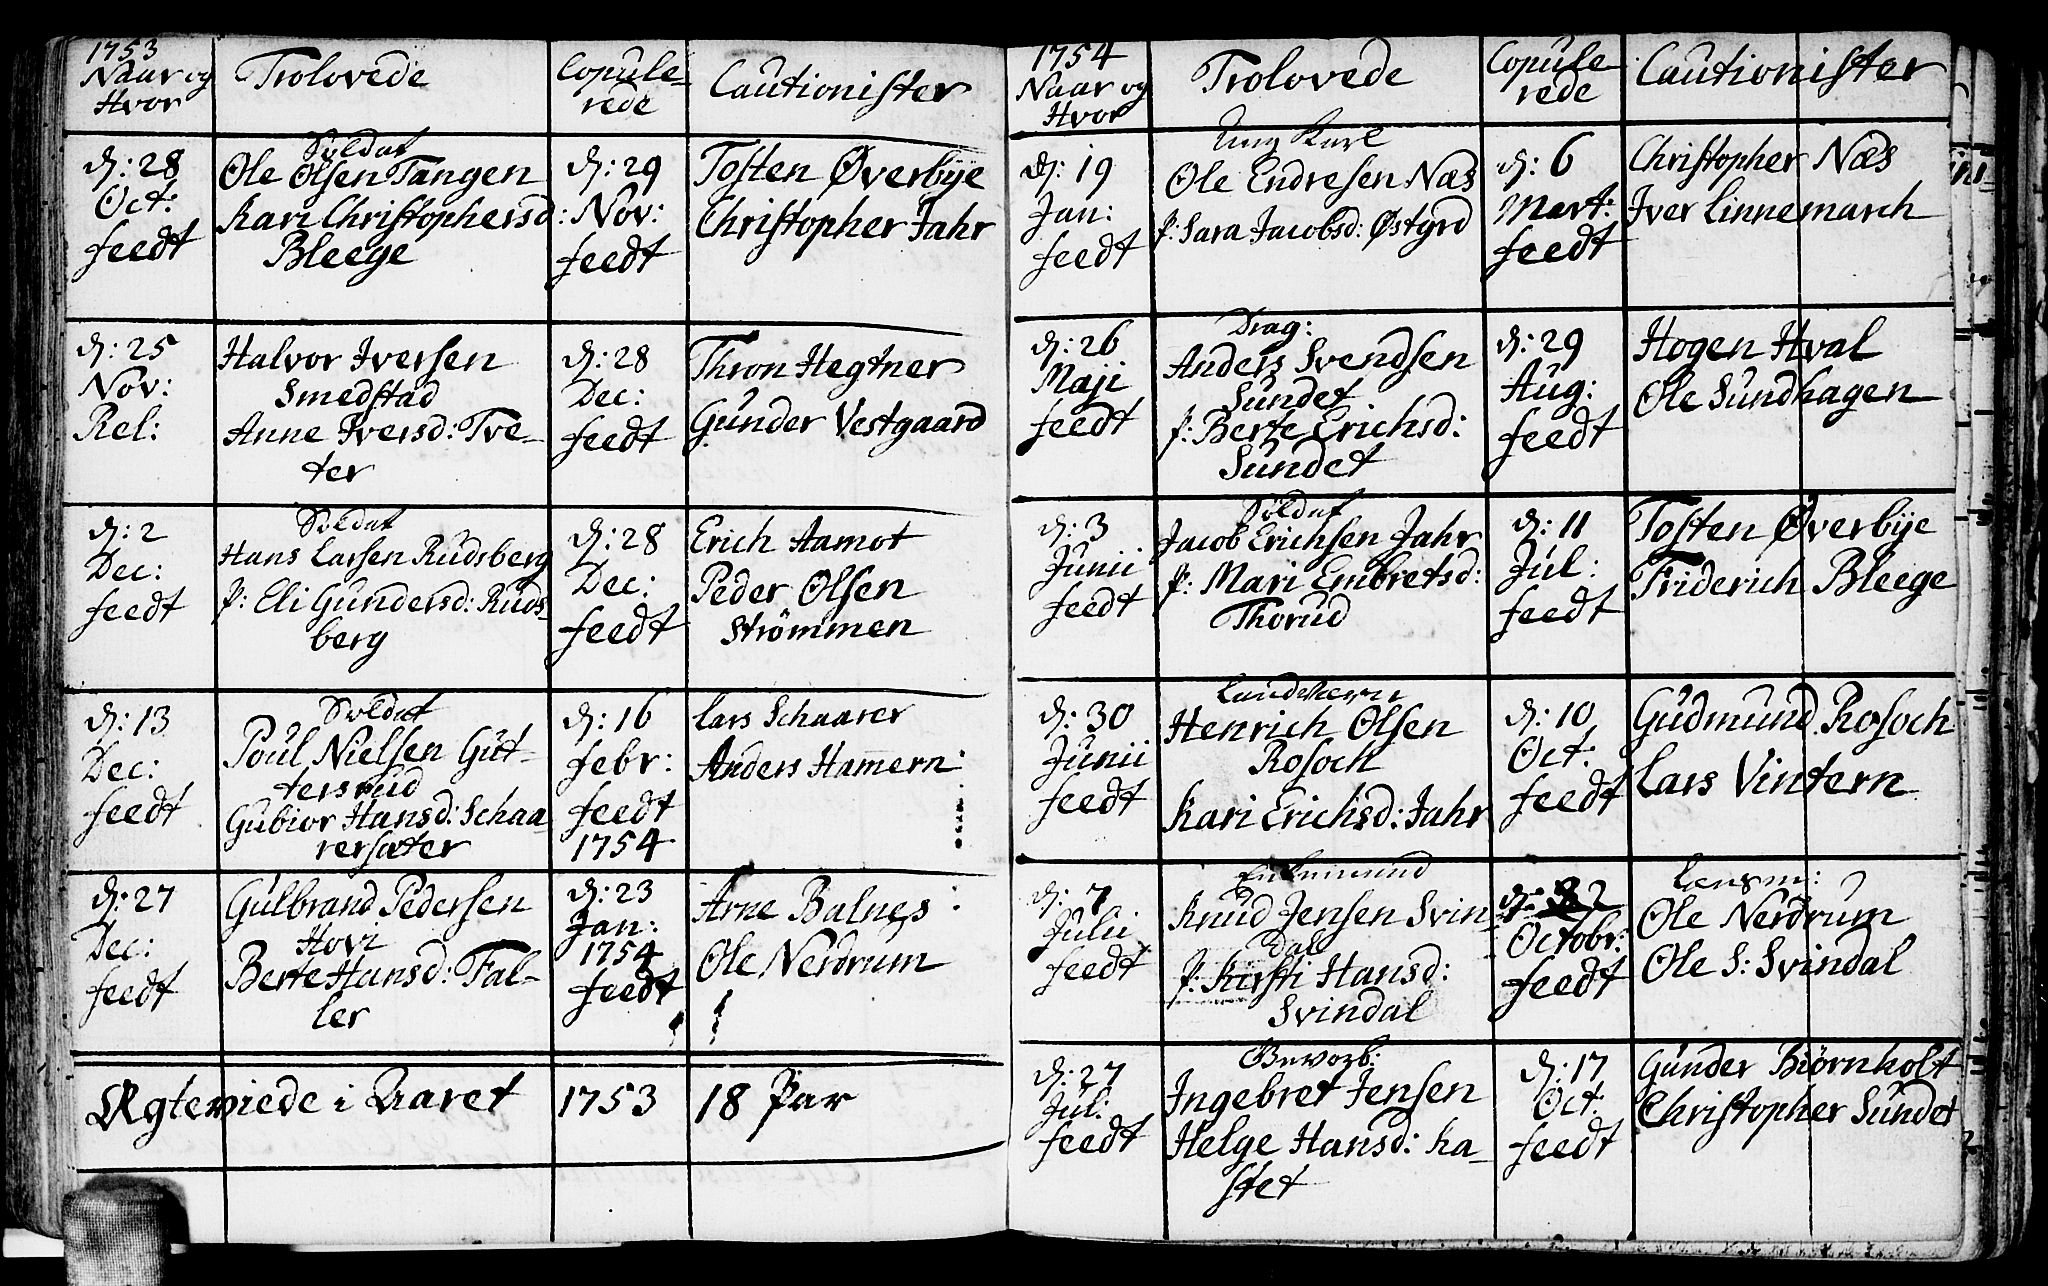 1753
Naar og
Hvor
Trolovede
Copule-
rede
Cautionister
d: 28
Oct:
feedt
Soldat
Ole Olsen Tangen
Kari Christophersd:
Bleege
d: 29
Nov:
feedt
Tosten Øverbÿe
Christopher Jahr
d: 25
Nov:
Rel:
Halvor Iversen
Smedstad
Anne Iversd: Tve-
ter
d: 28
Dec:
feedt
Thron Hegtner
Gunder Vestgaard
d: 2
Dec:
feedt
Soldat
Hans Larsen Rudsberg
P: Eli Gundersd: Ruds-
berg
d: 28
Dec:
feedt
Erich Aamot
Peder Olsen
Strömmen
d: 13
Dec:
feedt
Soldat
Poul Nielsen Gut-
tersrud
Gubior Hansd: Schaa-
rersæter
d: 16
Febr:
feedt
1754
Lars Schaarer
Anders Hamern
d: 27
Dec:
feedt
Gulbrand Pedersen
Hovi
Berte Hansd: Fal-
ler
d: 23
Jan:
1754
feedt
Arne Balnes
Ole Nerdrum
Ægteviede i Aaret 1753 18 Par
1754
Naar og
Hvor
Trolovede
Copule
rede
Cautionister
d: 19
Jan:
feedt
Ung Karl
Ole Endresen Næs
P: Sara Jacobsd: Østgrd
d: 6
Mart:
feedt
Christopher Næs
Iver Linnemarch
d: 26
Maji
feedt
Drag:
Anders Svendsen
Sundet
P: Berte Erichsd:
Sundet
d: 29
Aug:
feedt
Hogen Hval
Ole Sundhagen
d: 3
Junii
feedt
Soldat
Jacob Erichsen Jahr
P: Mari Embretsd:
Thorud
d: 11
Jul:
feedt
Tosten Øverbÿe
Friderich Bleege
d: 30
Junii
feedt
Landværn
Henrich Olsen
Rosoch
Kari Erichsd: Jahr
d: 10
Oct:
feedt
Gudmund Rosoch
Lars Vintern
d: 7
Julii
feedt
Enkemand
Knud Jensen Svin-
dal
P: Kirsti Hansd:
Svindal
d: 2
Octobr:
feedt
Lensm:
Ole Nerdrum
Ole S: Svindal
d: 27
Jul:
feedt
Gevorb:
Ingebret Jensen
Helge Hansd: Ka-
stet
d: 17
Oct:
feedt
Gunder Biørnholt
Christopher Sundet